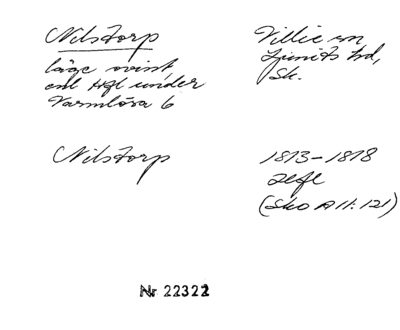 Nilstorp
Villie sn
Ljunits hd,
Sk.
läge ovisst,
enl Hfl under
Varmlösa 6
Nilstorp
1813-1818
Hfl
(Sko A II:121)
Nr 22322